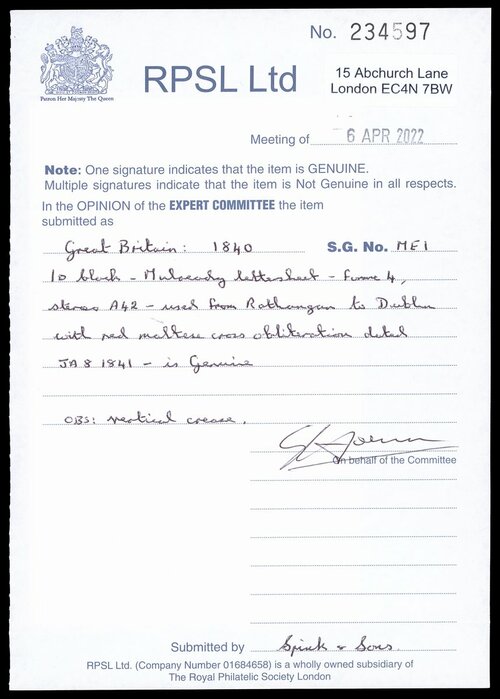 No. 234597
RPSL Ltd
15 Abchurch Lane
London EC4N 7BW
Patron Her Majesty The Queen
Meeting of 6 APR 2022
Note: One signature indicates that the item is GENUINE.
Multiple signatures indicate that the item is Not Genuine in all respects.
In the OPINION of the EXPERT COMMITTEE the item
submitted as
Great Britain: 1840 S.G. No. ME1
1D black - Mulready lettersheet - Forme 4,
stereo A42 - used from Rathangan to Dublin
with red maltese cross obliteration dated
JA 8 1841 - is Genuine
OBS: vertical crease.
On behalf of the Committee
Submitted by Spink & Sons.
RPSL Ltd. (Company Number 01684658) is a wholly owned subsidiary of
The Royal Philatelic Society London